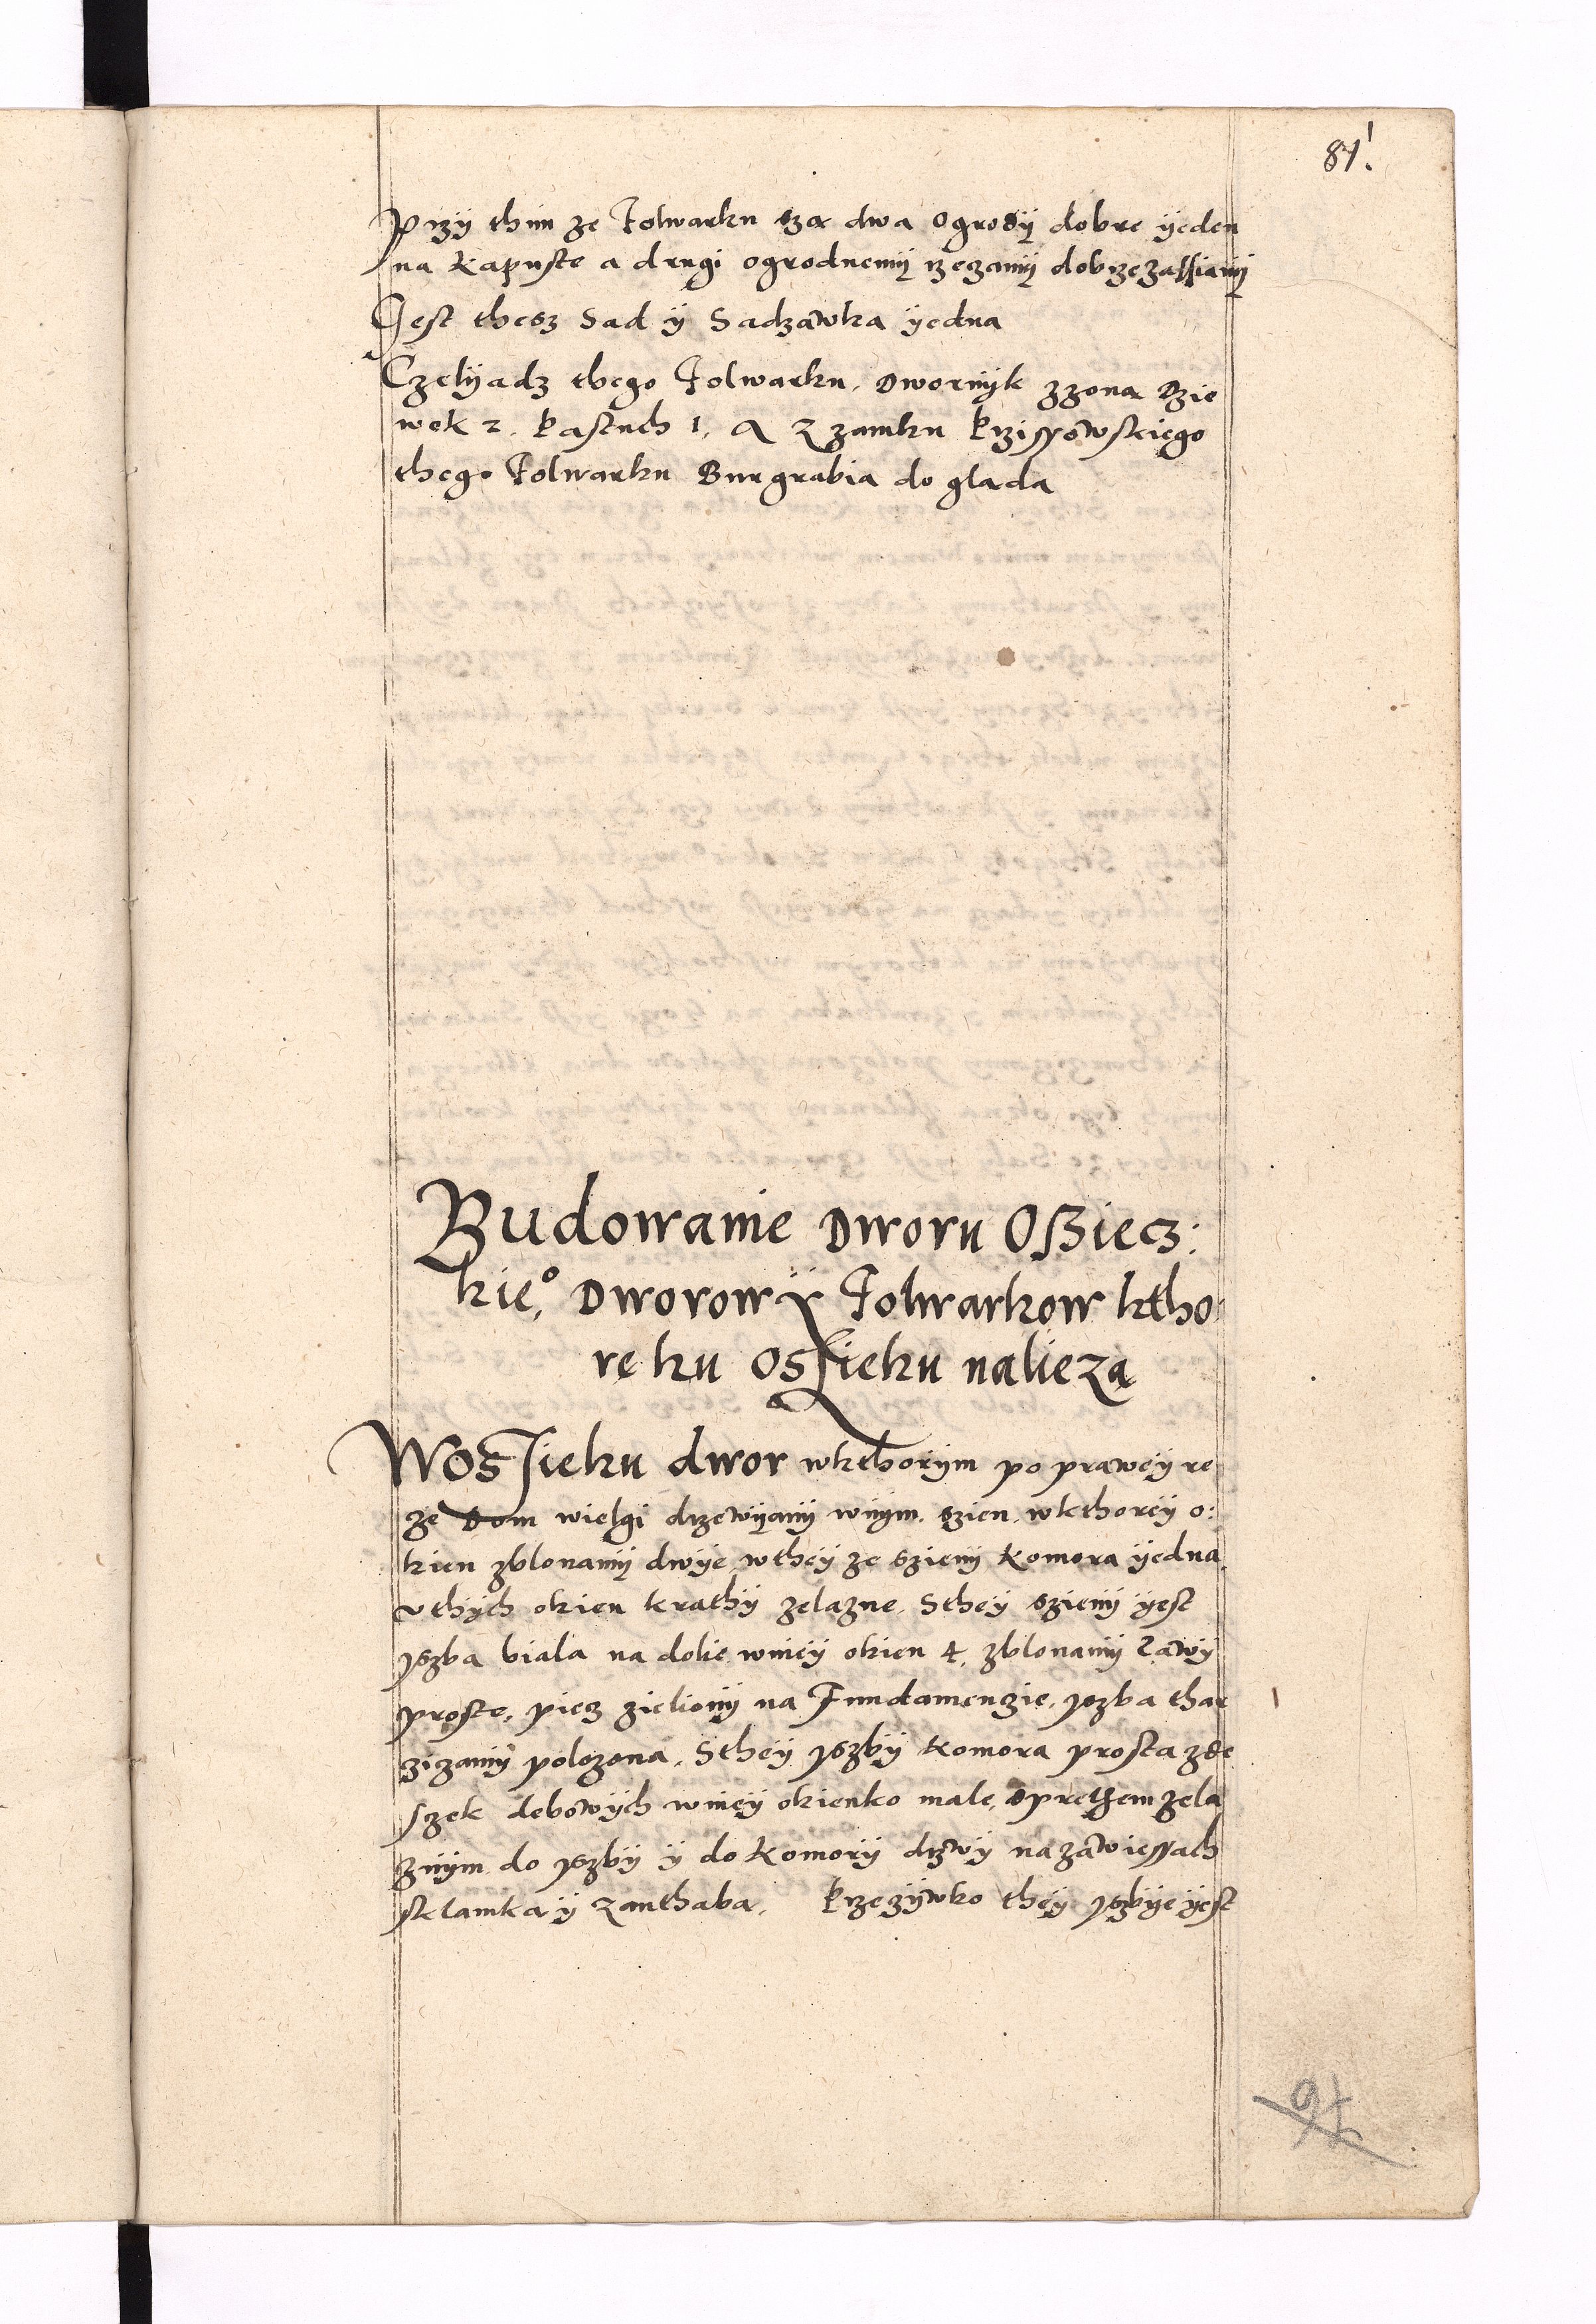 87!
Przÿ thim ze Folwarku sza dwa ogrodÿ dobre ÿeden
na Kapuste a drugi ogrodnemÿ rzeczamÿ dobrze zassianÿ
Jest thesz Sad ÿ Sadzawka ÿedna
Czelÿadz thego Folwarku, Dwornÿk zzona Dzie
wek 2, Pastuch 1, A Z zamku Krzissowskiego
thego Folwarku Burgrabia do glada
Budowanie Dworu Osziecz:
kie°, Dworow ÿ Folwarkow ktho
re ku Ossieku nalieza
Wossieku dwor wkthorÿm po praweÿ re
ze Dom wielgi drzewÿanÿ wnÿm, szien, wkthoreÿ o:
kien zblonamÿ dwÿe, wtheÿ ze szienÿ Komora ÿedna
v thÿch okien krathÿ zelazne, Stheÿ szienÿ ÿest
yszba biala na dolie, wnieÿ okien 4, zblonamÿ Lawÿ
proste, piecz zielionÿ na Fundamenczie, yszba thar
cziczamÿ polozona, Stheÿ yszbÿ Komora prosta zde
szek debowÿch wnieÿ okienko male, sprethem zela
znÿm, do yszbÿ ÿ do Komorÿ drzwÿ na zawiessach
sklamka ÿ zanthaba, Przeczÿwko theÿ yszbÿe ÿest